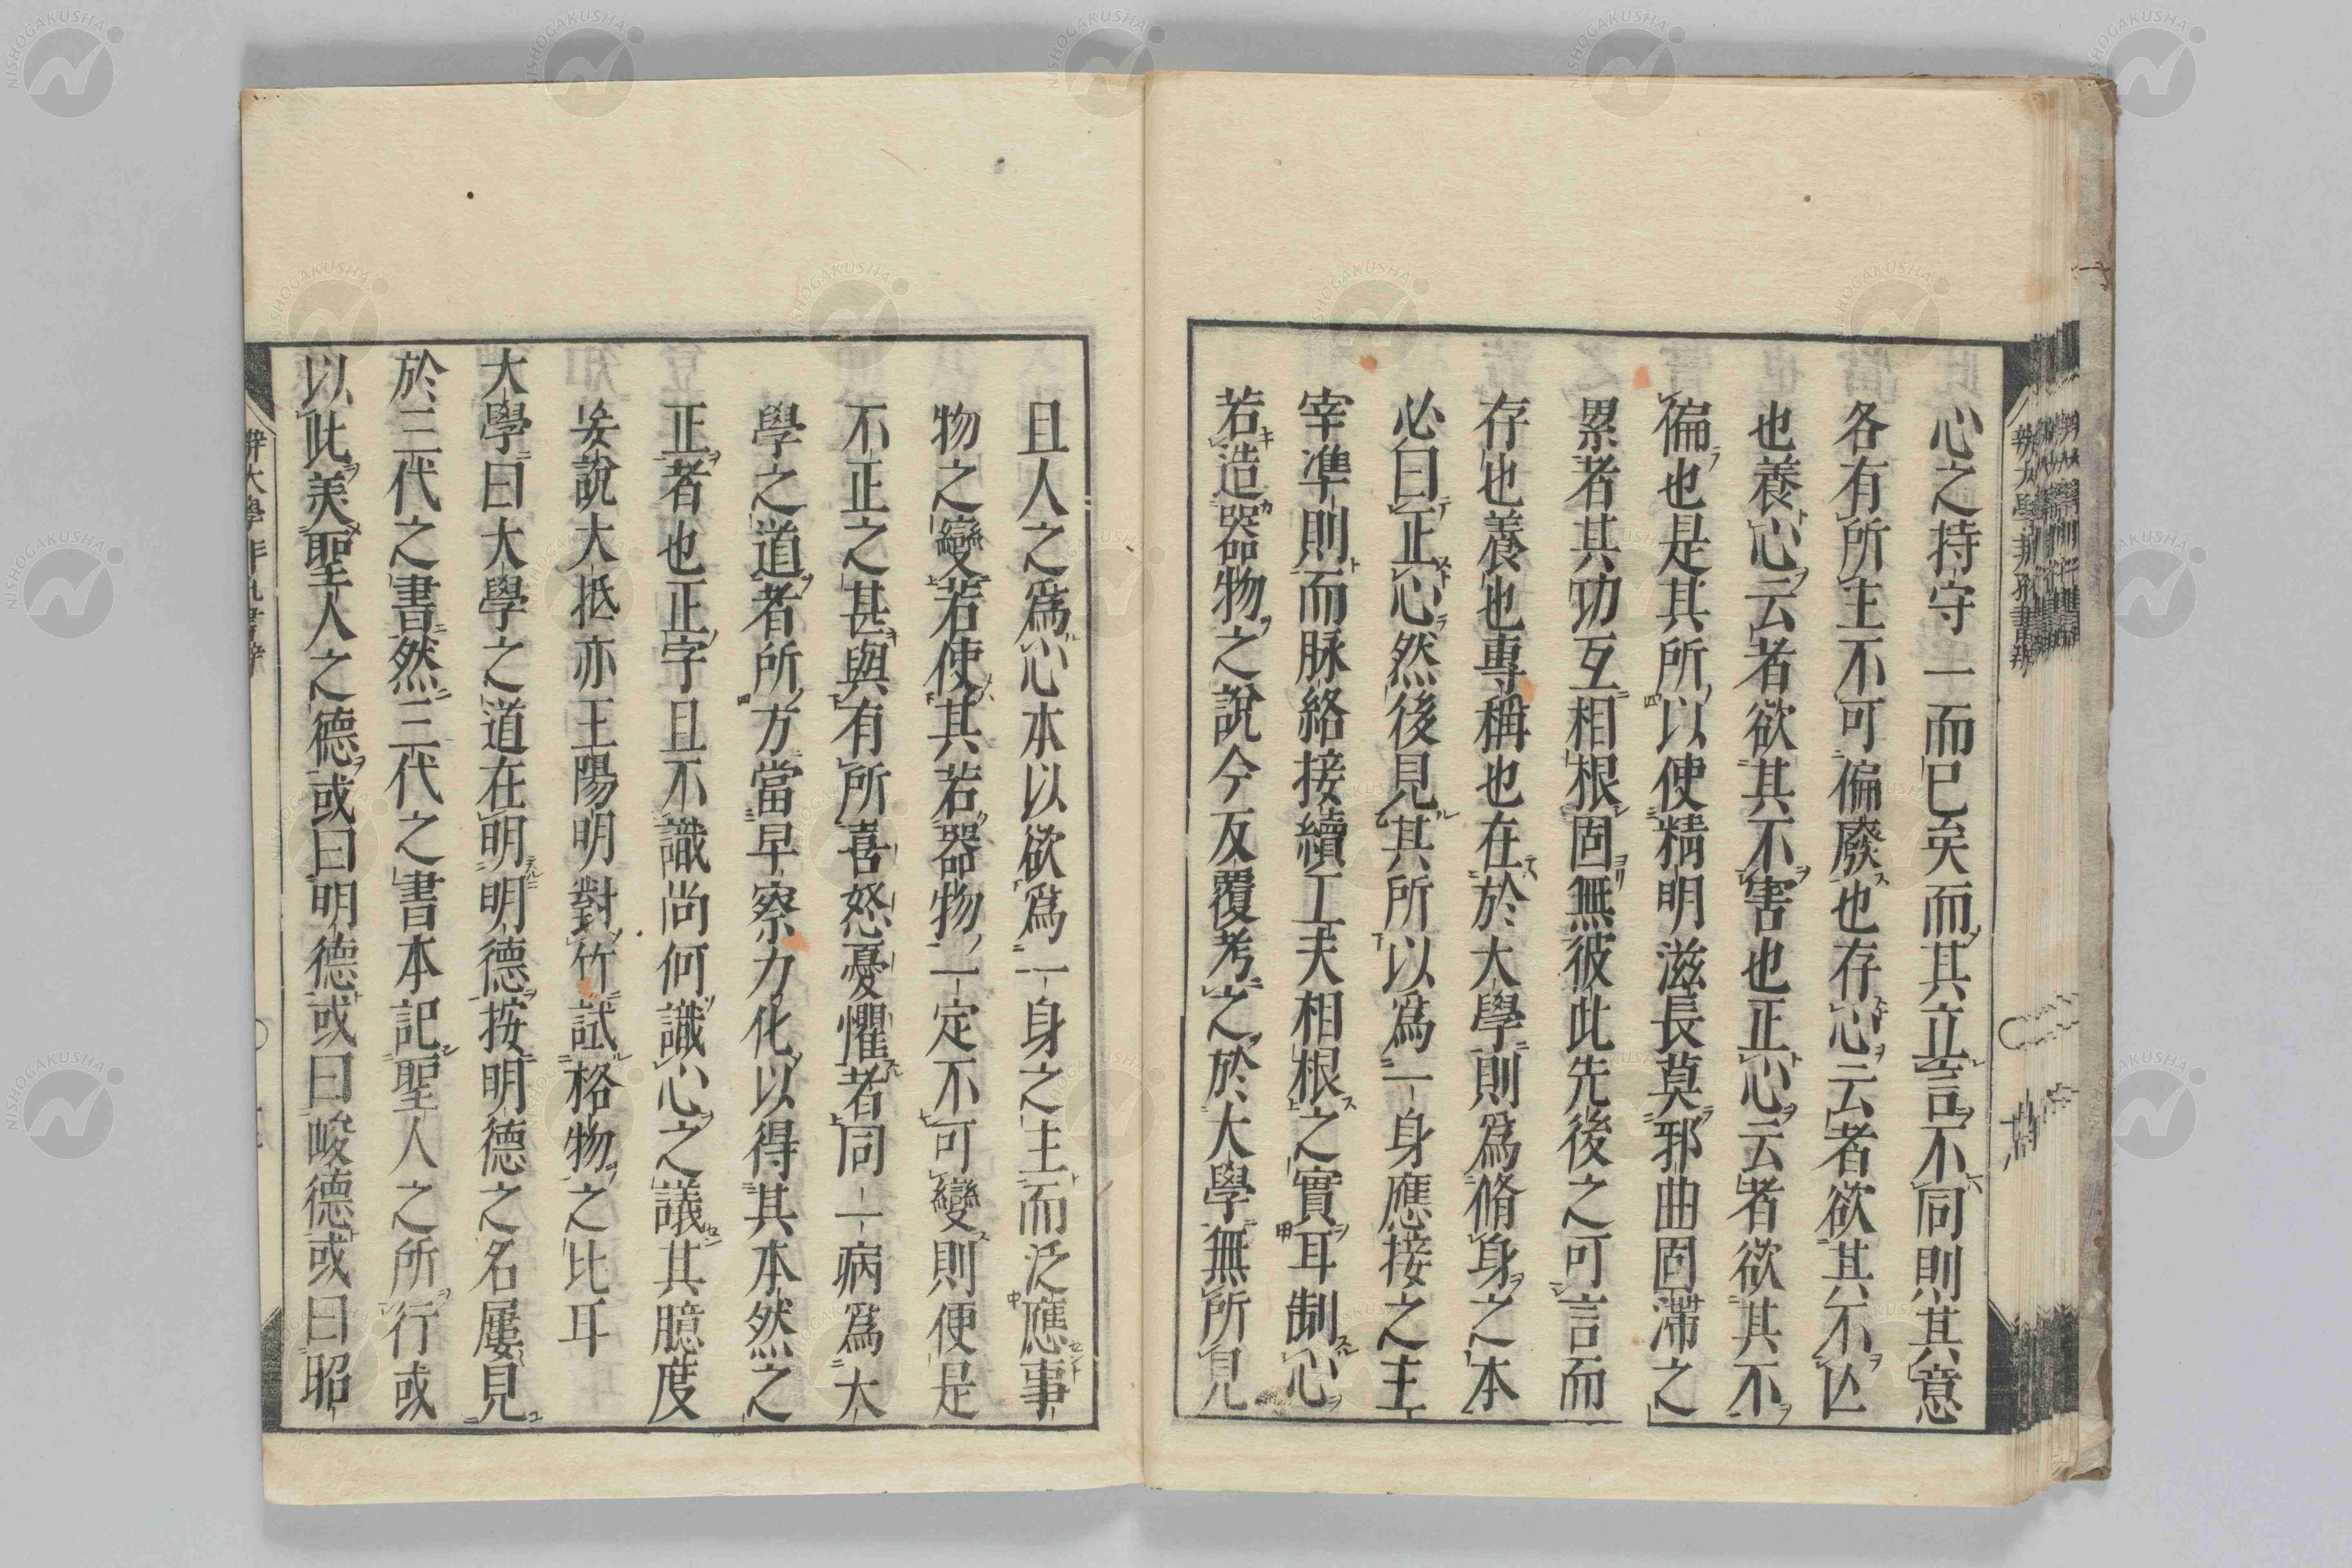 心之持守一而已矣而其立言不同則其意
各有所主不可偏廢也存心云者欲其不亾
也養心云者欲其不害也正心云者欲其不
偏也是其所以使精明滋長莫邪曲固滯之
累者其功互相根固無彼此先後之可言而
存也養也專稱也在於大學則爲脩身之本
必曰正心然後見其所以爲一身應接之主
宰準則而脉絡接續工夫相根之實耳制心
若造器物之說今反覆考之於大學無所見
且人之爲心本以欲爲一身之主而泛應事
物之變若使其若器物一定不可變則便是
不正之甚與有所喜怒憂懼者同一病爲大
學之道者所方當早察力化以得其本然之
正者也正字且不識尚何識心之議其臆度
妄說大抵亦王陽明對竹試格物之比耳
大學曰大學之道在明明德按明德之名屢見
於三代之書然三代之書本記聖人之所行或
以此美聖人之德或曰明德或曰峻德或曰昭
辨大學非孔書辨
NISHOGAKUSHA